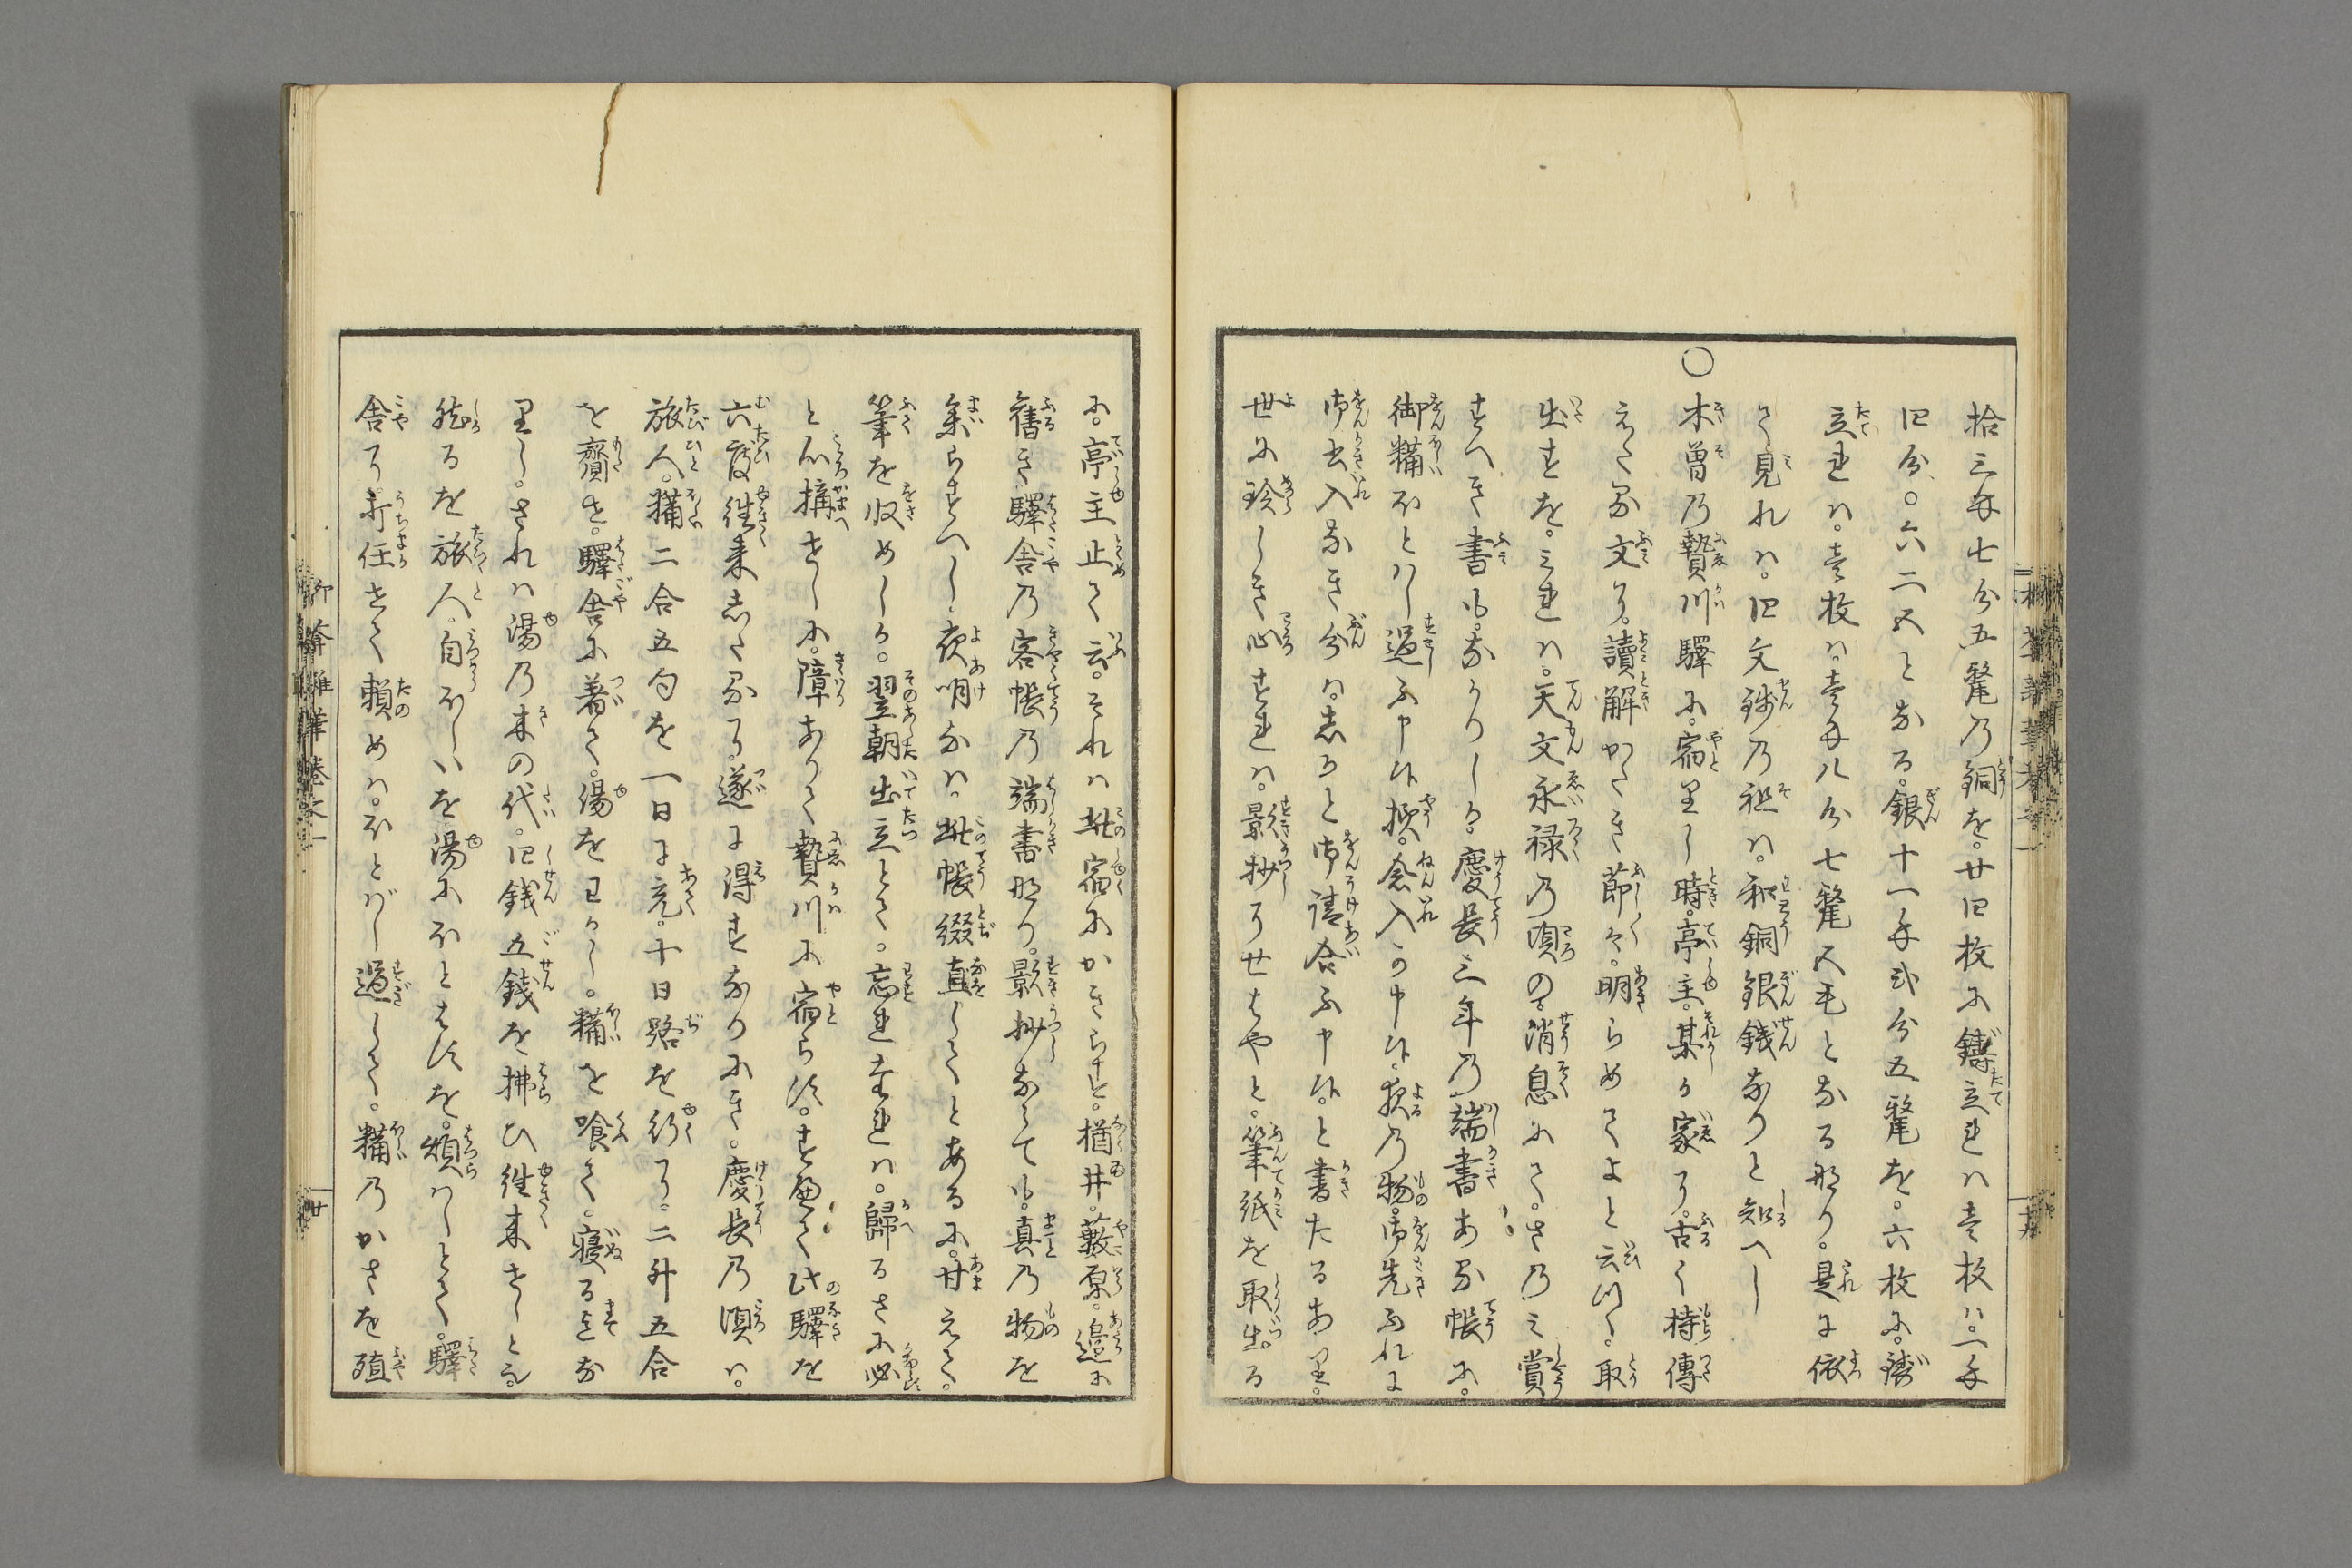 拾三匁七分五釐乃銅を。廿四枚に鑄立れハ壱枚ハ。一匁
四分。六二五となる。銀十一匁弐分五釐を。六枚に。鑄
立れハ。壱枚ハ。壱匁八分七釐五毛となる那り。是に依
て見れハ。四文銭乃祖ハ。和銅銀銭なりと知へし
○木曽乃贄川驛に。宿里し時。亭主。某か家に。古く持傳
えたる文に。讀解かたき節々を。明らめてよと云けり。取
出すを。見れハ。天文永禄乃頃の。消息にて。させる賞
すへき書も。なかりしか。慶長三年乃端書ある帳に。
御糒ほとハし過ふ申候様。念入可申候。夜乃物。御先ふれに
御書入なき分ハ。志かと御請合ふ申候。と書たるあり。
世に珍しき心すれハ。影抄りせはやと。筆紙を取出る
に。亭主止て云。それハ此宿にかきらす。楢井。藪原。邉に
舊き驛舎乃客帳乃端書那り。影抄なしても。真乃物を
参らすへし。夜明なハ。此帳綴直してとあるに。甘えて。
筆を収めしか。翌朝出立とて。忘れたれハ。歸るさに必
と心搆せしに。障ありて贄川に宿らす。すへて此驛を
六度往来したるに。遂に得すなりにき。慶長乃頃ハ。
旅人。糒二合五勺を一日に充。十日路を行に。二升五合
を齎せ。驛舎に着て。湯をわかし。糒を喰て。寝るまてな
里し。されハ湯乃木の代。四銭五銭を拂ひ往来せしとそ。
然るを旅人。自ほしいを湯にほとはすを。煩ハしとて。驛
舎に。打任せて頼めハ。ほとばし過して。糒乃かさを殖